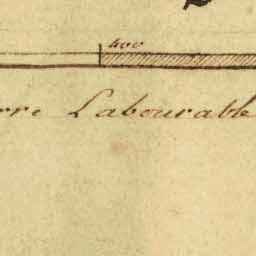 400
erre Labourable